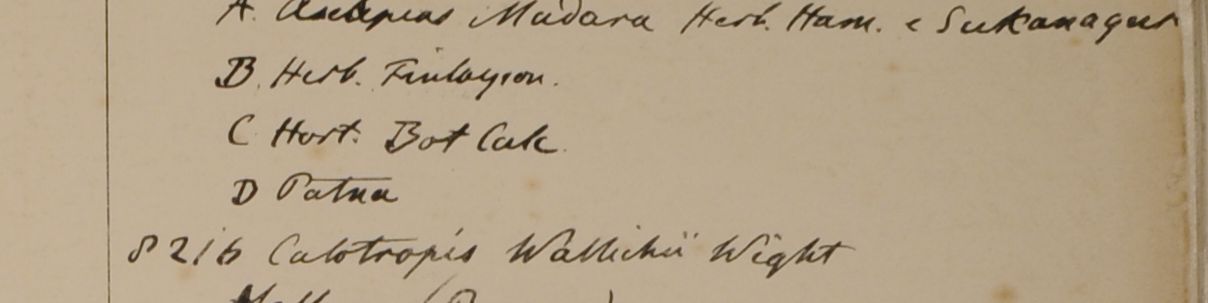 A. Asclepias Mudara Herb. Ham. e Sukanagur
B. Herb. Finlayson.
C Hort. Bot Calc.
D Patna
8216 Calotropis Wallichii Wight